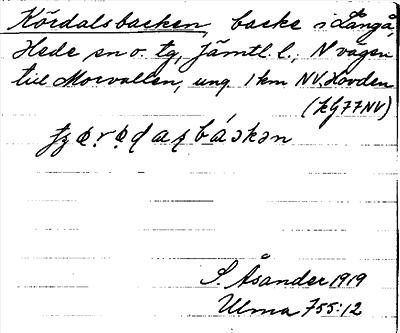 Kördalsbacken, backe i Långå,
Hede sn o. tg, Jämtl. l., N vägen
till Morvallen, ung. 1 km NV. Hovden
(kg 77 NV)
báɔkɔn
S. Åsander 1919
Ulma 755:12